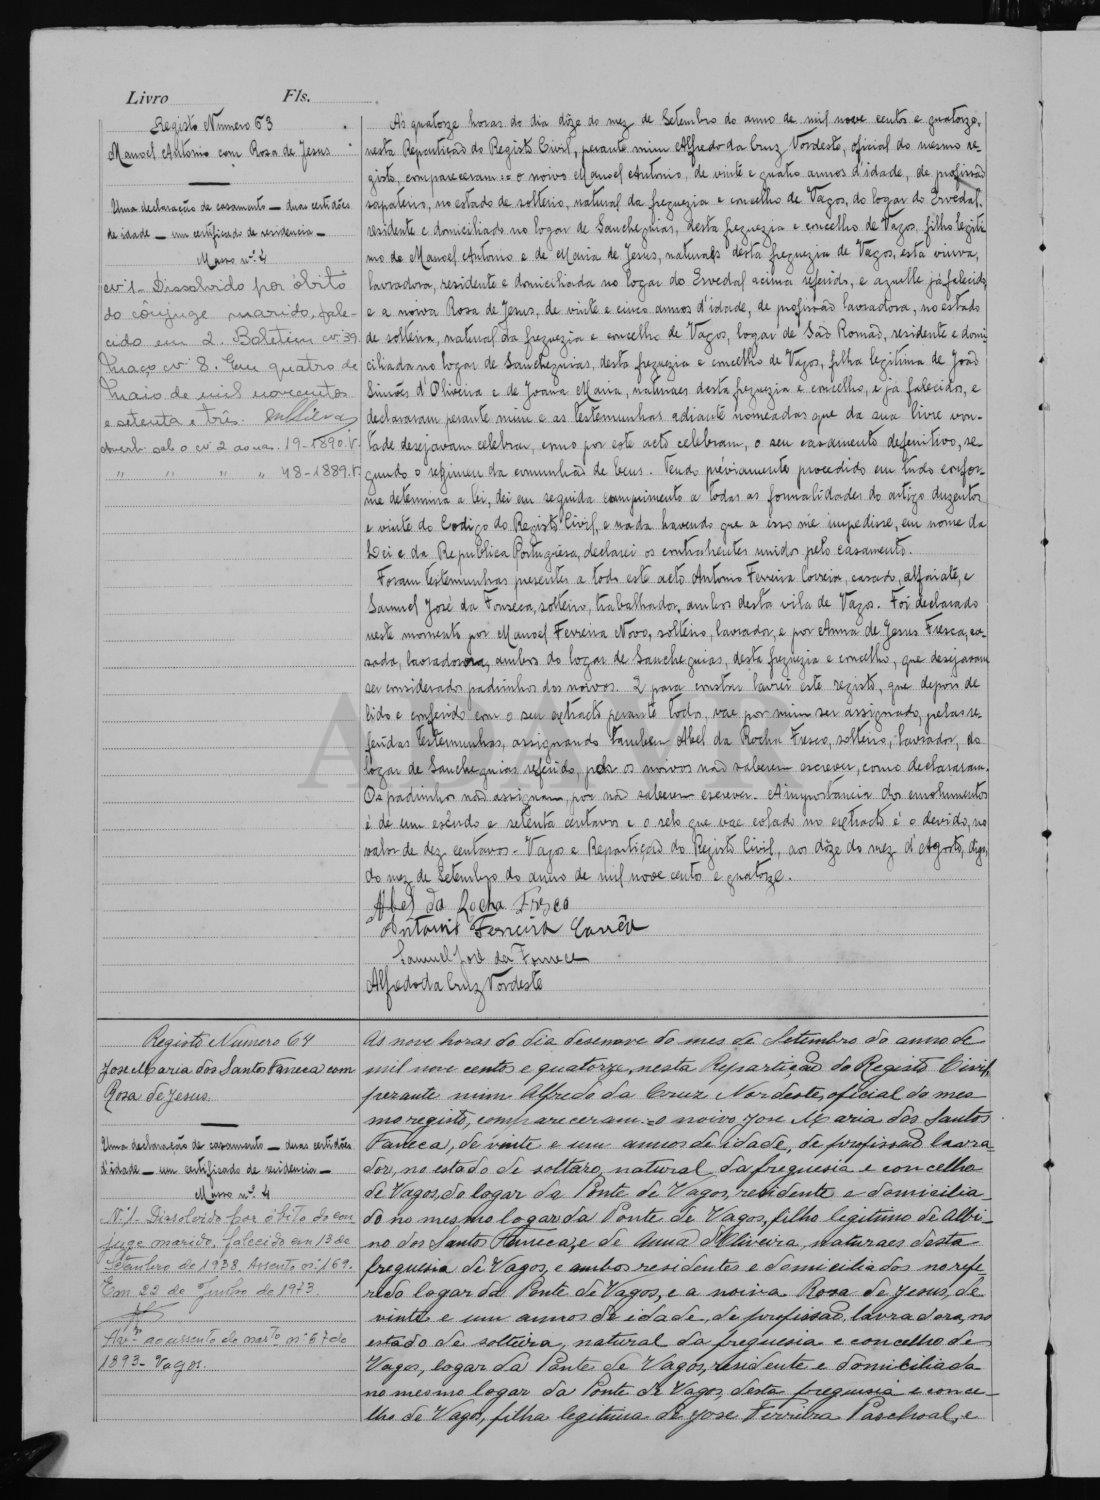 Livro Fls.
Registo Numero 63
Manoel Antonio com Rosa de Jesus
Uma declaração de casamento — duas certidões
de idade — um certificado de residencia —
Masso nº 4
Nº 1 - Dissolvido por óbito
do cônjuge marido, fale-
cido em 2. Boletim nº 39
Maço nº 8. Em quatro de
Maio de mil novecentos
e setenta e três.
Averb. sob o nº 2 ao nº 19-1890. V.
" " " " 48-1889. V.
Ás quatorze horas do dia dôze do mez de Setembro do anno de mil nove centos e quatorze,
nesta Repartição do Registo Civil, perante mim Alfredo da Cruz Nordeste, oficial do mesmo re-
gisto, compareceram: = o noivo Manoel Antonio, de vinte e quatro annos d'idade, de profissão
sapateiro, no estado de solteiro, natural da freguezia e concelho de Vagos, do logar do Ervedal,
residente e domiciliado no logar de Sancheguias, desta freguezia e concelho de Vagos, filho legiti-
mo de Manoel Antonio e de Maria de Jesus, naturaes desta freguezia de Vagos, esta viuva,
lavradora, residente e domiciliada no logar do Ervedal acima referido, e aquelle já falecido,
e a noiva Rosa de Jesus, de vinte e cinco annos d'idade, de profissão lavradora, no estado
de solteira, natural da freguezia e concelho de Vagos, logar de São Romão, residente e domi-
ciliada no logar de Sancheguias, desta freguezia e concelho de Vagos, filha legitima de João
Simões d'Oliveira e de Joana Maria, naturaes desta freguezia e concelho, e já falecidos, e
declararam perante mim e as testemunhas adiante nomeadas que da sua livre von-
tade desejavam celebrar, como por este acto celebram, o seu casamento defenitivo, se-
gundo o regimen da comunhão de bens. Tendo préviamente procedido em tudo confor-
me determina a lei, dei em seguida cumprimento a todas as formalidades do artigo duzentos
e vinte do Codigo do Registo Civil, e nada havendo que a isso me impedisse, em nome da
Lei e da Republica Portuguêsa, declarei os contrahentes unidos pelo casamento.
Foram testemunhas presentes a todo este acto Antonio Ferreira Correia, casado, alfaiate, e
Samuel José da Fonseca, solteiro, trabalhador, ambos desta vila de Vagos. Foi declarado
neste momento por Manoel Ferreira Novo, solteiro, lavrador, e por Anna de Jesus Fresca, ca-
sada, lavradora, ambos do logar de Sancheguias, desta freguezia e concelho, que desejavam
ser considerados padrinhos dos noivos. E para constar lavrei este registo, que depois de
lido e conferido com o seu extracto perante todos, vae por mim ser assignado, pelas re-
feridas testemunhas, assignando tambem Abel da Rocha Fresco, solteiro, lavrador, do
logar de Sancheguias referido, por os noivos não saberem escrever, como declararam.
Os padrinhos não assignam, por não saberem escrever. A importancia dos emolumentos
é de um escudo e setenta centavos e o selo que vae colado no extracto é o devido, no
valor de dez centavos. - Vagos e Repartição do Registo Civil, aos dôze do mez d'Agosto, digo,
do mez de Setembro do anno de mil nove centos e quatorze.
Abel da Rocha Fresco
Antonio Ferreira Corrêa
Samuel José da Fonseca
Alfredo da Cruz Nordeste
Registo Numero 64
Jose Maria dos Santos Faneca com
Rosa de Jesus.
Uma declaração de casamento — duas certidões
d'idade — um certificado de residencia —
Masso nº 4
Nº 1 - Dissolvido por óbito do con
juge marido, falecido em 13 de
Setembro de 1938. Assento nº 169.
Em 22 de Junho de 1973.
ao assento de nasto nº 67 de
1893 - Vagos.
As nove horas do dia desenove do mes de Setembro do anno de
mil nove centos e quatorze, nesta Repartição do Registo Civil,
perante mim Alfredo da Cruz Nordeste, oficial do mes
mo registo, compareceram: = o noivo Jose Maria dos Santos
Faneca, de vinte e um annos de idade, de profissão lavra
dor, no estado de soltaro, natural da freguesia e concelho
de Vagos, do logar da Ponte de Vagos, residente e domicilia-
do no mesmo logar da Ponte de Vagos, filho legitimo de Albi-
no dos Santos Faneca, e de Anna d'Oliveira, naturaes desta
freguesia de Vagos, e ambos residentes e domiciliados no refe-
rido logar da Ponte de Vagos, e a noiva Rosa de Jesus, de
vinte e um annos de idade, de profissão, lavradora, no
estado de solteira, natural da freguesia e concelho de
Vagos, logar da Ponte de Vagos, residente e domiciliada
no mesmo logar da Ponte de Vagos, desta freguesia e conce-
lho de Vagos, filha legitima de Jose Ferreira Paschoal, e